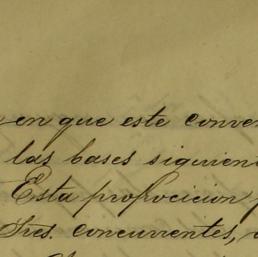 en que este conve
las bases siguien
Esta proposicion
Sres. concurrentes,